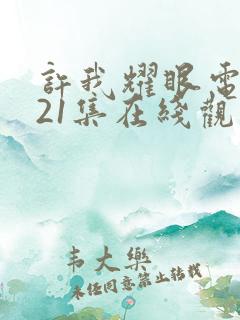 許我耀眼電
21集在綫觀
韦大樂
未经同意禁止转载